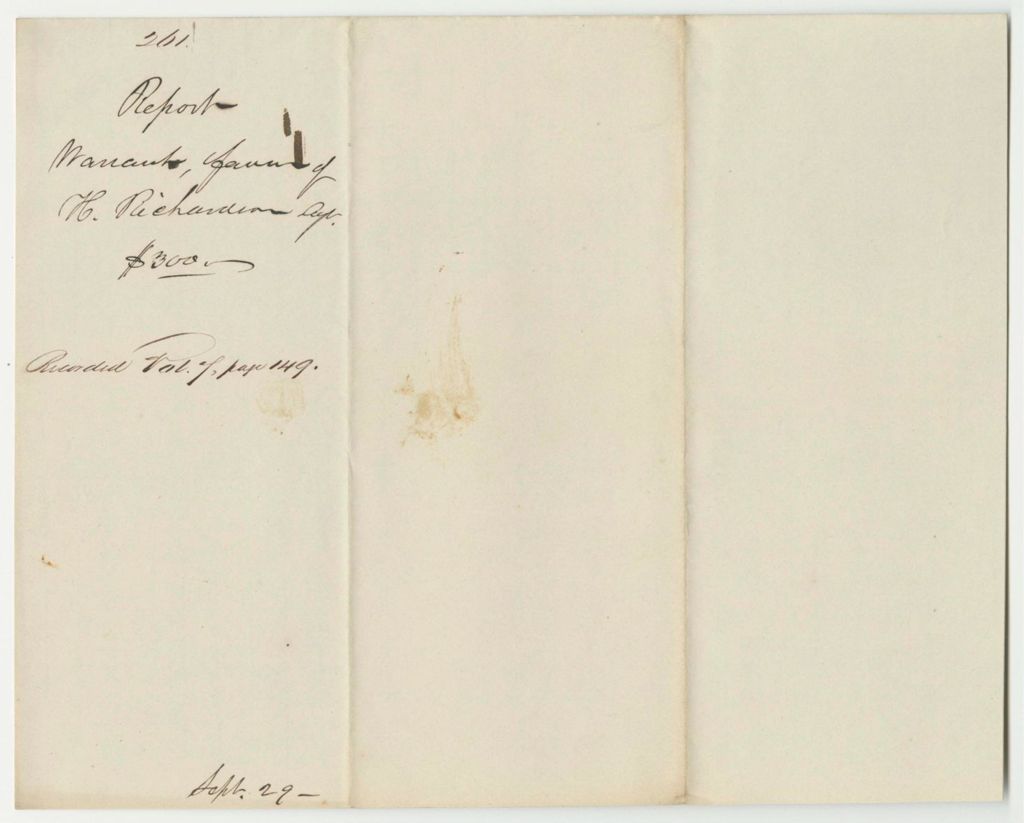 261.
Report
Warrant, favor of
H. Richardson Agt.
$300.
Recorded Vol. 7, page 149.
Sept. 29